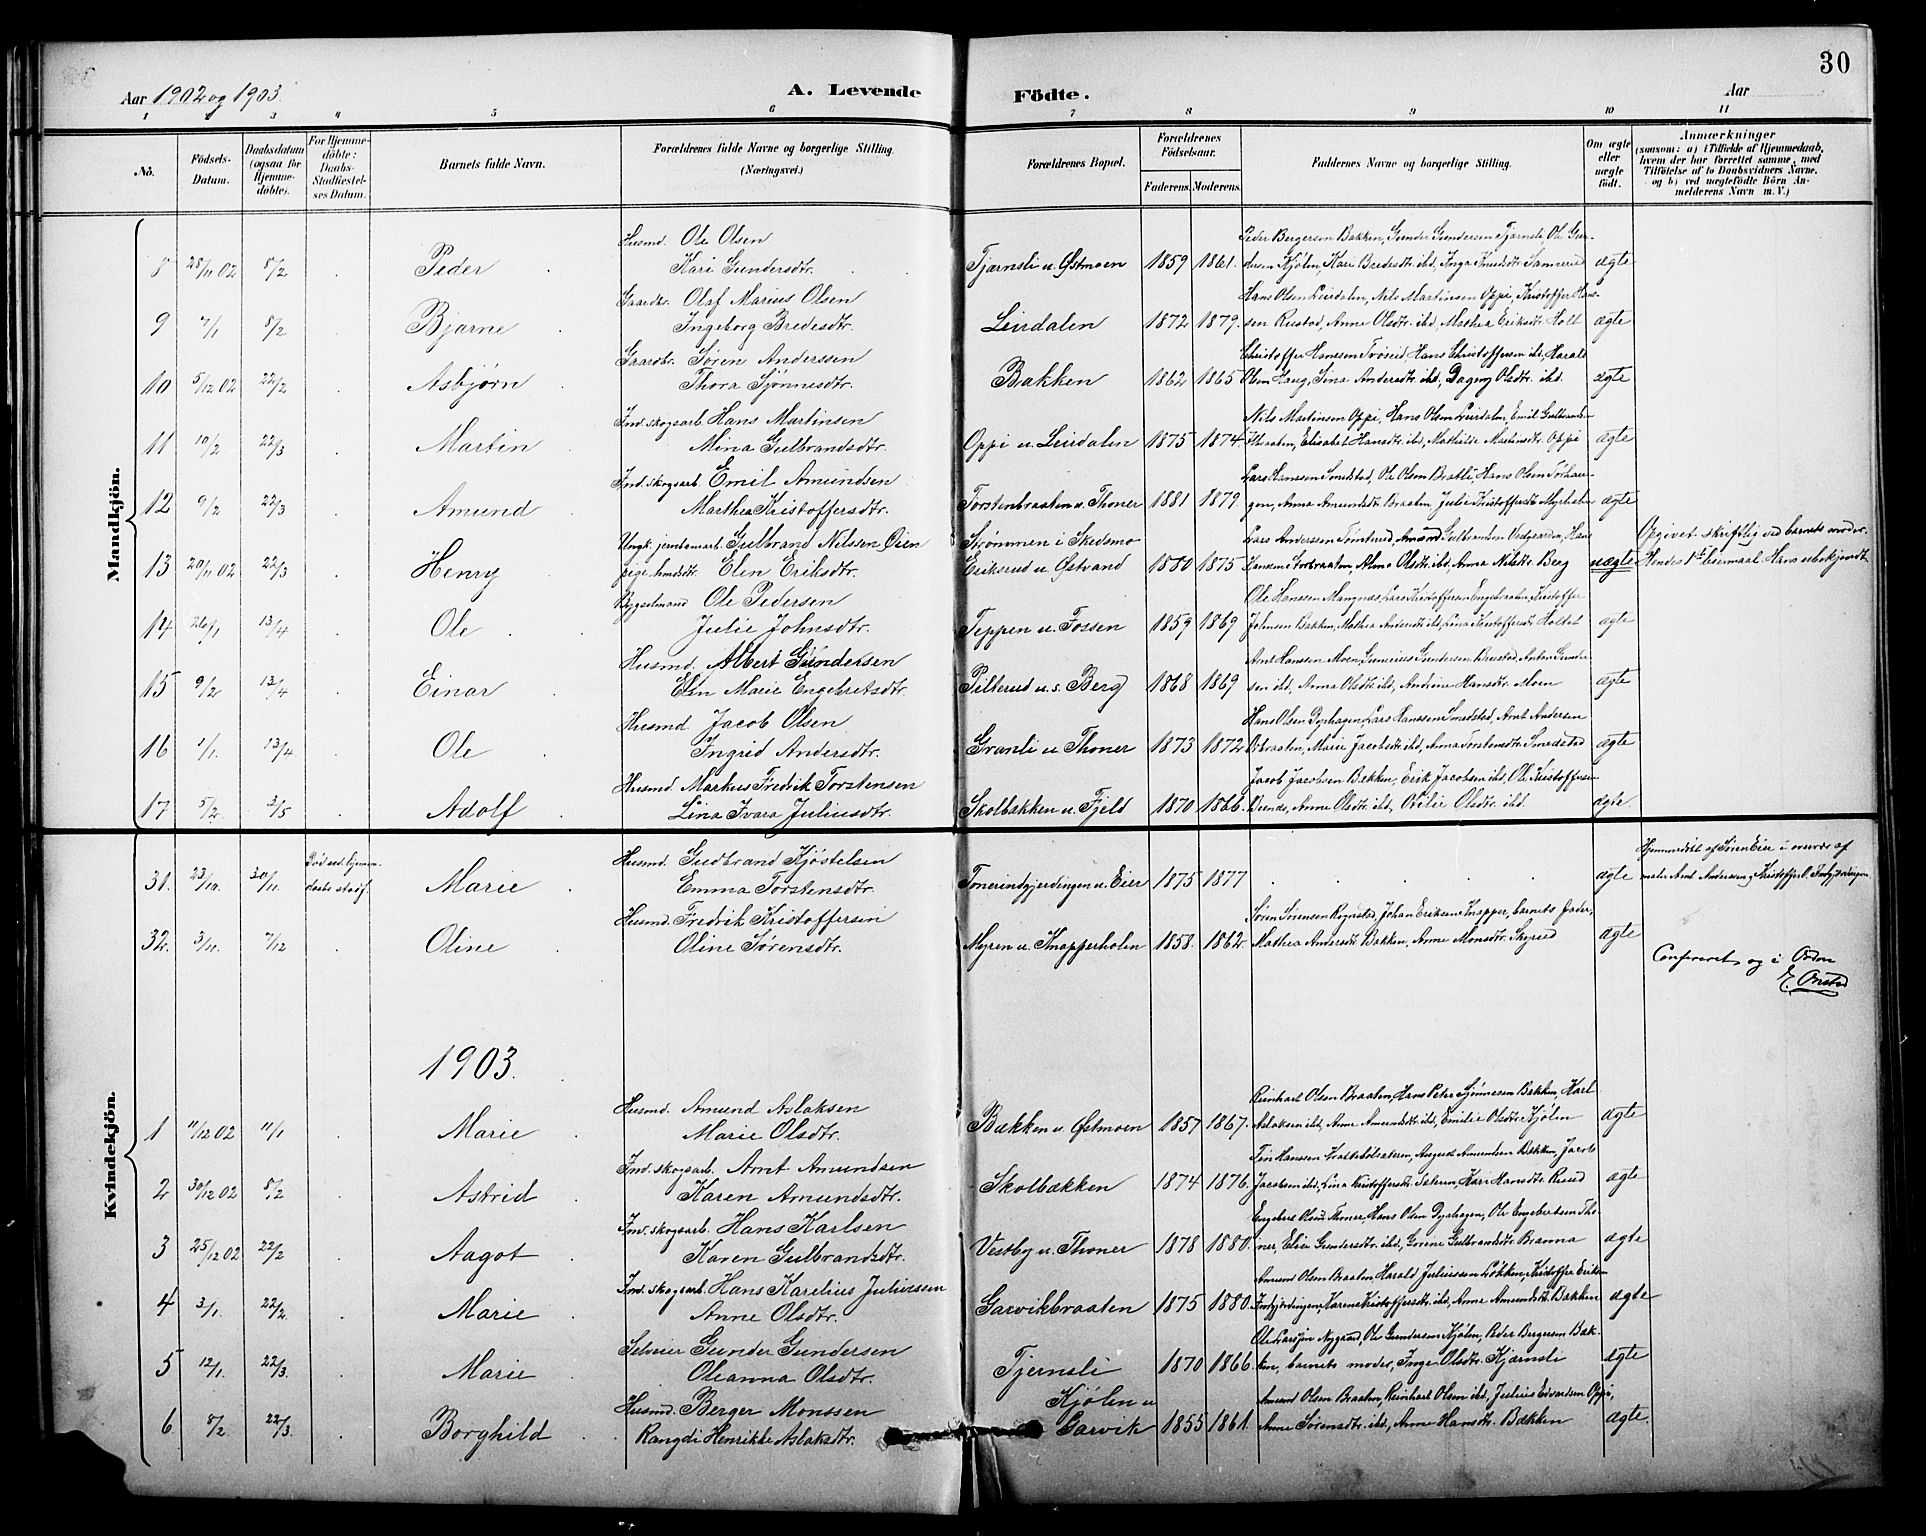 30
Aar 1902 og 1903.
A. Levende Födte.
Aar
1 2 3 4 5 6 7 8 9 10 11
No.
Födsels-Datum.
Daabsdatum (ogsaa for Hjemme-döbte).
For Hjemme-döbte: Daabs-Stadfæstel-ses Datum.
Barnets fulde Navn.
Forældrenes fulde Navne og borgerlige Stilling. (Næringsvei.)
Forældrenes Bopæl.
Forældrenes Födselsaar.
Faderens. Moderens.
Faddernes Navne og borgerlige Stilling.
Om ægte eller uægte födt.
Anmærkninger
(saasom: a) i Tilfælde af Hjemmedaab, hvem der har forrettet samme, med Tilföielse af to Daabsvidners Navne, og b) ved uægtefödte Börn An-melderens Navn m. V.)
Mandkjön.
Husmd. Ole Olsen
Peder Bergersen Bakken, Gunder Gundersen Tjærnsli, Ole Gun-
8 28/11 02 8/2 Peder Kari Gundersdtr. Tjærnsli u. Østmoen 1859 1861. dersen Kjølen, Kari Bredesdtr. ibd, Inga Knudsdtr. ægte
Gaardbr. Olaf Marius Olsen
Hans Olsen Leirdalen, Nils Martinsen Oppi, Kristoffer Hans-
9 7/1 8/2 Bjarne Ingeborg Bredesdtr. Leirdalen 1872 1879. sen Rustad, Anne Olsdtr. ibd, Mathea Eriksdtr. Holt ægte
Gaardbr. Søren Anderssen
Christoffer Hanssen Tvøseid, Hans Christoffersen ibd, Harald
10 5/12 02 22/2 Asbjørn Thora Sjønnesdtr. Bakken 1862 1865 Olsen Haug, Sina Andersdtr. ibd, Dagny Olsdtr. ibd. ægte
Ind. skogsarb. Hans Martinsen
Nils Martinsen Oppi, Hans Olsen Leirdalen, Emil Gulbrands-
11 10/2 22/3 Martin Mina Gulbrandsdtr. Oppi u. Leirdalen 1875 1874. Elisabet Hansdtr. ibd, Mathilde Martinsdtr. Oppi ægte
Ind. skogsarb. Emil Amundsen
Lars Hanssen Smedstad, Ole Olsen Bratli, Hans Olsen
12 9/2 22/3 Amund Marthea Kristoffersdtr. Torstenbraaten u. Thoner 1881 1879. Anna Amundsdtr. Braaten, Julie Kristoffersdtr. Myrholen ægte
Ungk. jernbanearb. Gulbrand Nilssen Øien Strømmen i Skedsmo
Lars Anderssen Tømterud, Amund Gulbrandsen Vestgaarden, Hans
Opgivet skriftlig ved barnets moder.
13 20/11 02 22/3 Henry pige Elen Eriksdtr. Eriksrud u. Østvand 1880 1875 Anna Nilsdtr. Berg uægte Hendes 1ste leiermaal. Hans ubekjendt
Bygselmand Ole Pedersen
Ole Hanssen Mangnæs, Lars Kristoffersen Engebraaten, Kristoffer
14 26/1 13/4 Ole Julie Johnsdtr. Teppen u. Fossen 1859 1869 Johnsen Bakken, Mathea Andersdtr. ibd, Lina Kristoffersdtr. Holtet ægte
Husmd. Albert Gundersen
Arnt Hanssen Moen, Gunerius Gundersen Brustad, Anton Gunder-
15 9/2 13/4 Einar Elin Marie Engebretsdtr. Pilterud u. s. Berg 1868 1869 sen ibd, Anna Olsdtr. ibd, Andrine Hansdtr. Moen ægte
Husmd. Jacob Olsen
Hans Olsen Dyphagen, Lars Hanssen Smedstad, Arnt Andersen
16 1/1. 13/4 Ole Ingrid Andersdtr. Granli u. Thoner 1873 1872 Marie Jacobsdtr. ibd, Anna Torstensdtr. Smedstad ægte
Husmd. Markus Fredrik Torstensen
Jacob Jacobsen Bækken, Erik Jacobsen ibd, Ole Kristoffersen
17 5/2 3/5 Adolf Lina Ivara Juliusdtr. Skolbækken u. Fjeld 1870 1866. Anne Olsdtr. ibd, Otilie Olsdtr. ibd. ægte.
Kvindekjön.
Død ved hjemme- Husmd. Gudbrand Kjøstelsen
Hjemmedøbt af Søren Eier i overvær af
31. 23/10 30/11. daabs stadf. Marie Emma Torstensdtr. Tonerindgjerdingen u. Eier 1875 1877 ægte Arnt Andersen, Kristoffer O. Indgjerdingen
Husmd. Fredrik Kristoffersen
Søren Sørensen Rognstad, Johan Eriksen Knapper, barnets fader,
32. 3/11. 7/12 Oline Oline Sørensdtr. Myren u. Knapperholen 1858. 1862. Mathea Andersdtr. Bakken, Anne Monsdtr. ægte
Confereret og i Orden
E. Ørsted
1903.
Husmd. Amund Aslaksen
Reinhart Olsen Braaten, Hans Peter Sjønnesen Bækken, Karl
1 11/12 02 11/1 Marie Marie Olsdtr. Bækken u. Østmoen 1857 1867. Aslaksen ibd, Anne Amundsdtr. ibd, Emilie Olsdtr. Kjølen ægte
Ind. skogsarb. Arnt Amundsen
August Amundsen Bækken, Jacob
2 30/12 02 8/2 Astrid Karen Amundsdtr. Skolbækken 1874 1876. Jacobsen ibd, Lina Kristoffersdtr. Kari Hansdtr. Ruud ægte
Ind. skogsarb. Hans Karlsen
Engebret Olsen Thoner, Hans Olsen Dyphagen, Ole Engebretsen Tho-
3 25/12 02 22/2 Aagot Karen Gulbrandsdtr. Vestby u. Thoner 1878 1880. ner Elise Gundersdtr. ibd, Gorine Gulbrandsdtr. Branna ægte
Ind. skogsarb. Hans Karelius Juliussen
Amund Olsen Braaten, Harald Juliussen Løkken, Kristoffer Eriksen
4 3/1. 22/2 Marie Anne Olsdtr. Garvikbraaten 1875 1880. Indgjerdingen, Karen Kristoffersdtr. ibd, Anne Amundsdtr. Bakken ægte
Selveier Gunder Gundersen
Ole Larssen Nygaard, Ole Gundersen Kjølen, Peder Bergersen Bak-
5 12/1. 22/3. Marie Oleanna Olsdtr. Tjernsli 1870 1866. ken, barnets moder, Inge Olsdtr. Kjærnsli ægte
Husmd. Berger Monssen Kjølen u
Amund Olsen Braaten, Reinhart Olsen ibd, Julius Edvardsen Oppi,
6 8/2 22/3. Borghild Rangdi Henrikke Aslaksdtr. Garvik 1855 1861. Anne Sørensdtr. ibd, Anne Hansdtr. Bækken ægte.